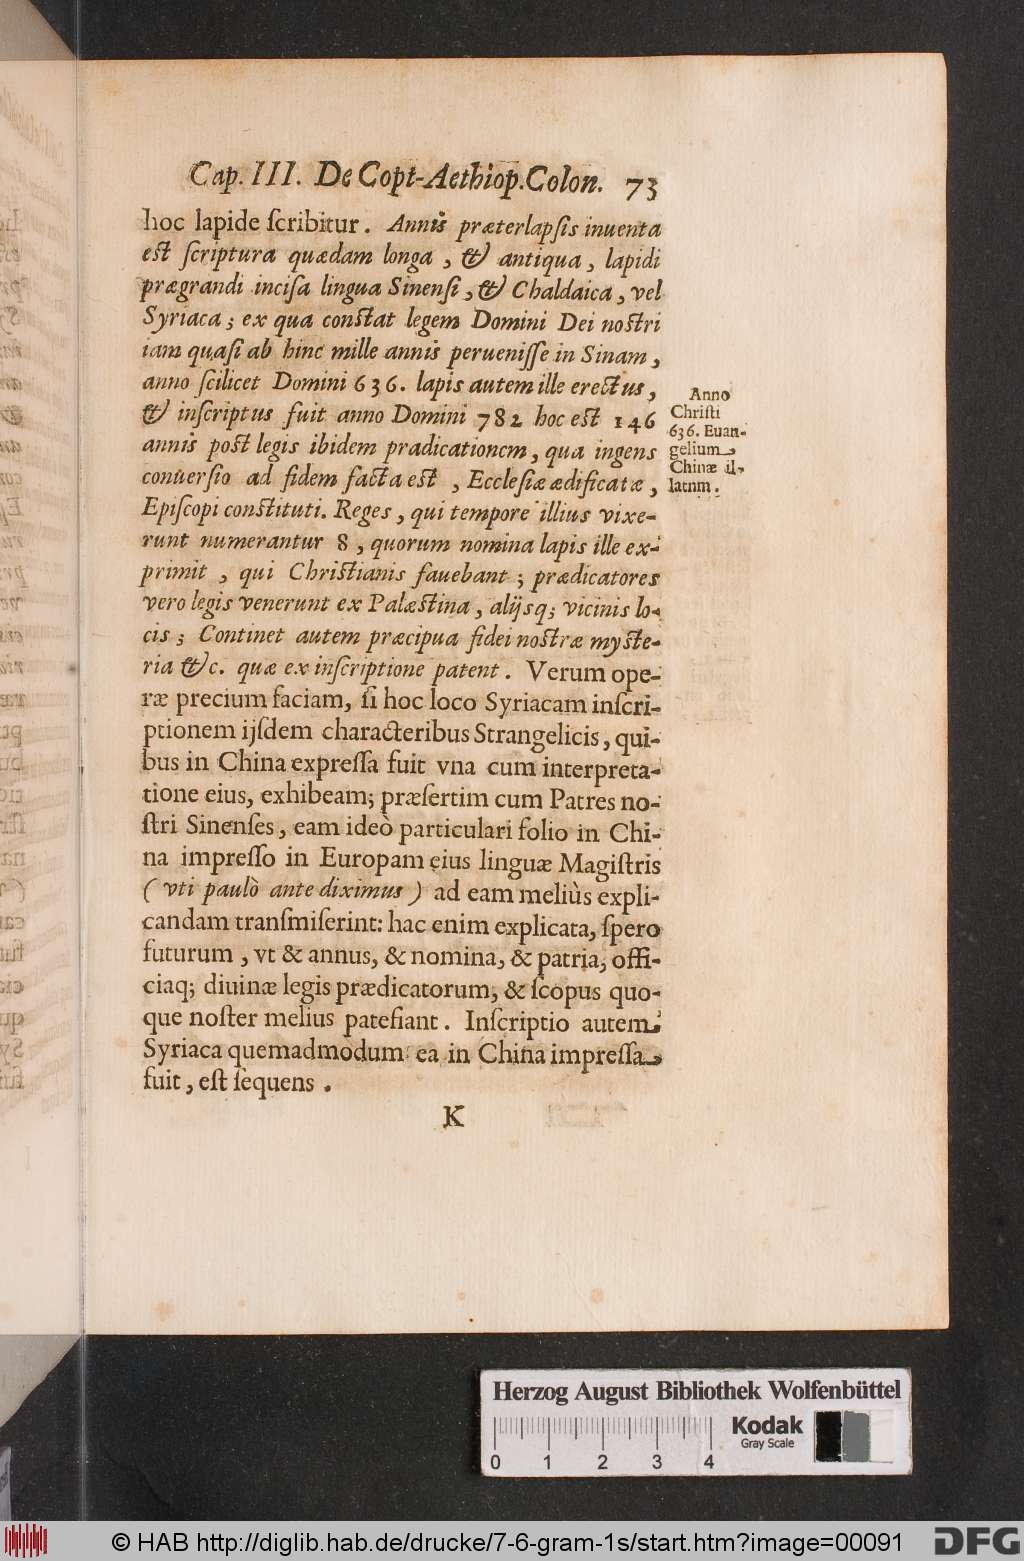 Cap. III. De Copt-Aethiop. Colon. 73
hoc lapide ſcribitur. Annis præterlapſis inuenta
eſt ſcriptura quædam longa, & antiqua, lapidi
prægrandi inciſa lingua Sinenſi, & Chaldaica, vel
Syriaca; ex qua conſtat legem Domini Dei noſtri
iam quaſi ab hinc mille annis perueniſſe in Sinam,
anno ſcilicet Domini 636. lapis autem ille erectus,
& inſcriptus fuit anno Domini 782 hoc eſt 146
annis poſt legis ibidem pradicationcm, qua ingens
conuerſio ad fidem facta eſt, Eccleſiæ ædificatæ,
Epiſcopi conſtituti. Reges, qui tempore illius vixe-
runt numerantur 8, quorum nomina lapis ille ex-
primit, qui Chriſtianis fauebant; prædicatores
vero legis venerunt ex Palæſtina, alijsq; vicinis lo-
cis; Continet autem præcipua fidei noſtræ myſte-
ria &c. quæ ex inſcriptione patent. Verum ope-
ræ precium faciam, ſi hoc loco Syriacam inſcri-
ptionem ijſdem characteribus Strangelicis, qui-
bus in China expreſſa fuit vna cum interpreta-
tione eius, exhibeam; præſertim cum Patres no-
ſtri Sinenſes, eam ideò particulari folio in Chi-
na impreſſo in Europam eius linguæ Magiſtris
(vti paulò ante diximus) ad eam meliùs expli-
candam tranſmiſerint: hac enim explicata, ſpero
futurum, vt & annus, & nomina, & patria, offi-
ciaq; diuinæ legis prædicatorum, & ſcopus quo-
que noſter melius patefiant. Inſcriptio autem
Syriaca quemadmodum ea in China impreſſa
fuit, eſt ſequens.
K
Anno
Chriſti
636. Euan-
gelium
Chinæ il-
latnm.
Herzog August Bibliothek Wolfenbüttel
0 1 2 3 4
Kodak
Gray Scale
© HAB http://diglib.hab.de/drucke/7-6-gram-1s/start.htm?image=00091
DFG